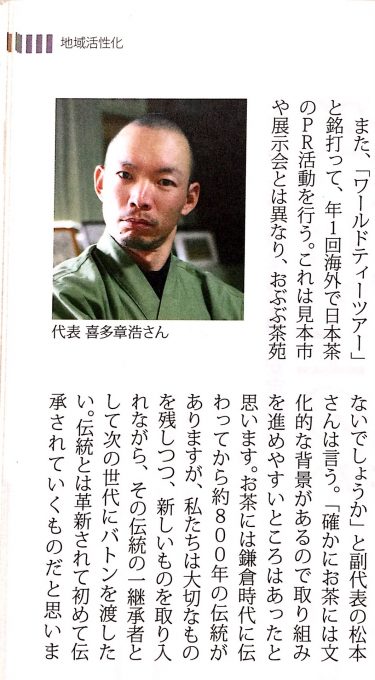 地域活性化
また、「ワールドティーツアー」
と銘打って、年1回海外で日本茶
のPR活動を行う。これは見本市
や展示会とは異なり、おぶぶ茶苑
代表 喜多章浩さん
ないでしょうか」と副代表の松本
さんは言う。「確かにお茶には文
化的な背景があるので取り組み
を進めやすいところはあったと
思います。お茶には鎌倉時代に伝
わってから約800年の伝統が
ありますが、私たちは大切なもの
を残しつつ、新しいものを取り入
れながら、その伝統の一継承者と
して次の世代にバトンを渡した
い。伝統とは革新されて初めて伝
承されていくものだと思いま